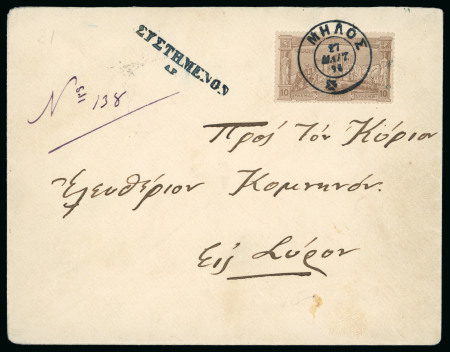 ΣΥΣΤΗΜΕΝΟΝ
ΜΗΛΟΣ
27
ΜΑΡΤ.
96
10 10
Nos 138
Πρὸς Τὸν Κύριον
Ἐλευθέριον Κομνηνόν.
Εἰς Σύρον